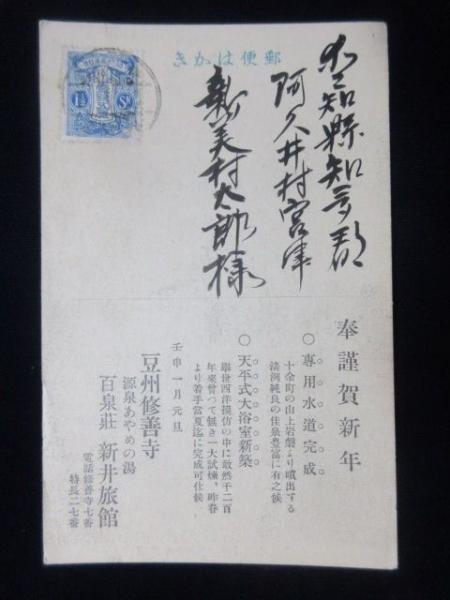 きかは便郵
1½ Sn
愛知縣知多郡
阿久井村宮津
新美村太郎様
奉謹賀新年
○専用水道完成
十余町の山上岩盤より噴出する
清冽純良の佳泉豊富に有之候
○天平式大浴室新築
擧世西洋摸仿の中に敢然千二百
年來曾つて無き一大試煉、昨春
より着手當夏迄に完成可仕候
壬申一月元旦
豆州修善寺
源泉あやめの湯
百泉莊 新井旅館
電話修善寺七番
特長二七番